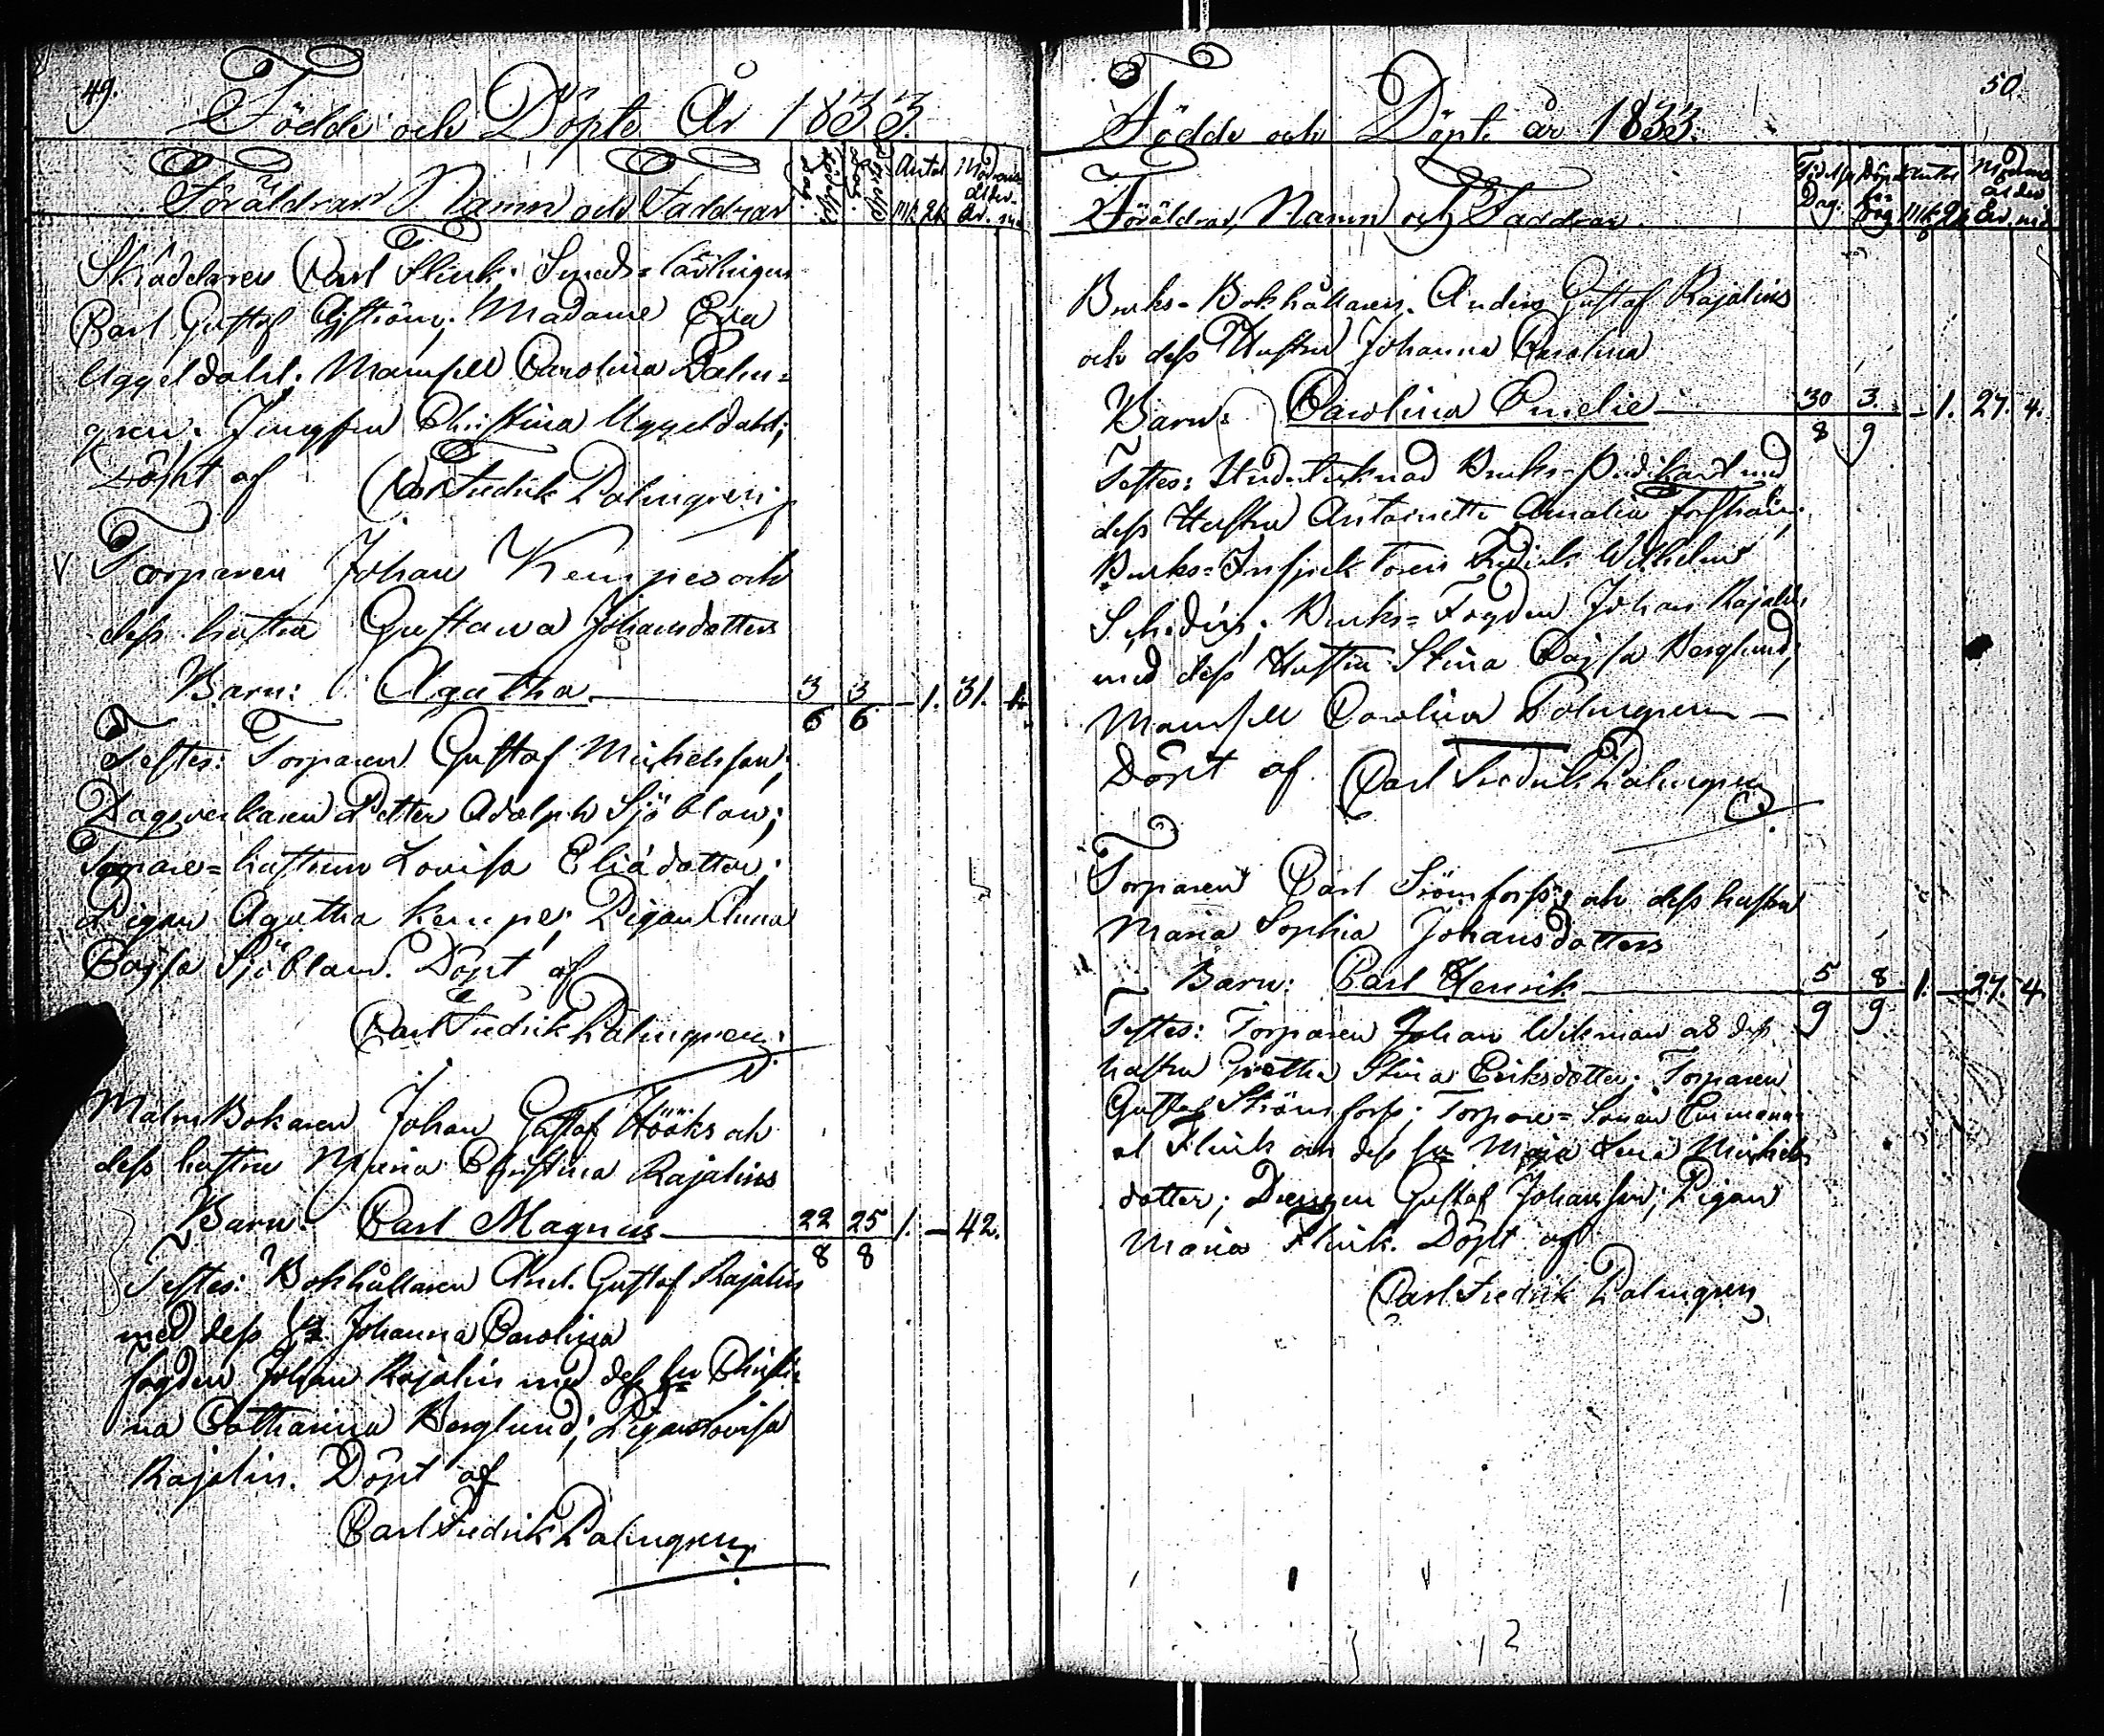 49.
Födde och Döpte År 1833.
Föräldrar Namn och Faddrar
Födelse dag. Döpelse dag. Antal Mk. Qk. Modrens ålder. År. må
Skräddaren Carl Flink; Smeds-lärlingen
Carl Gustaf; Madame Eva
Uggeldahl; Mamsell Carolina Palm=
gren; Jungfru Christina Uggeldahl;
Döpt af Carl Fredrik Palmgren;
Torparen Johan Kempes och
dess hustru Gustawa Johansdotters
Barn: Agatha 3/6 3/6 - 1. 31. 4.
Testes: Torparen Gustaf Michelsson;
Dagsverkaren Petter Adolph Sjöblom;
Torpare=hustrun Lovisa Eliädotter;
Pigan Agatha Kempe; Pigan Anna
Cajsa Sjöblom. Döpt af
Carl Fredrik Palmgren.
Malm Bokaren Johan Gustaf Hööks och
dess hustru Maria Christina Rajalins
Barn: Carl Magnus 22/8 25/8 1. - 42.
Testes: Bokhållaren And. Gustaf Rajalin
med dess Johanna Carolina
fogden Johan Rajalin med dess hu Christi=
na Catharina Berglund; Pigan Lovisa
Rajalin. Döpt af
Carl Fredrik Palmgren
50.
Födde och Döpte år 1833.
Föräldrar, Namn och Faddrar.
Födelse Dag. Döpelse Dag Antal Mk. Qk. Modrens ålder År. må
Bruks-Bokhållaren Anders Gustaf Rajalins
och dess Hustru Johanna Carolina
Barn: Carolina Emelie 30/8 3./9 - 1. 27. 4.
Testes: Bruks= med
dess Hustru Antoinette Amalia
Bruks=Inspektoren Fredrik Wilhelm
Bruks=Fogden Johan Rajalin
med dess Hustru Stina Cajsa Berglund;
Mamsell Carolina Palmgren —
Döpt af Carl Fredrik Palmgren
Torparen Carl Strömforss; och dess hustru
Maria Sophia Johansdotters
Barn: Carl Henrik 5/9 8/9 1. - 27. 4
Testes: Torparen Johan Wikman och dess
hustru Gretha Stina Eriksdotter; Torparen
Gustaf Strömforss; Torpare=Sonen Emmanu=
el Flink och dess hu Maja Lena Michels
dotter; Drengen Gustaf Johansson; Pigan
Maria Flink. Döpt af
Carl Fredrik Palmgren